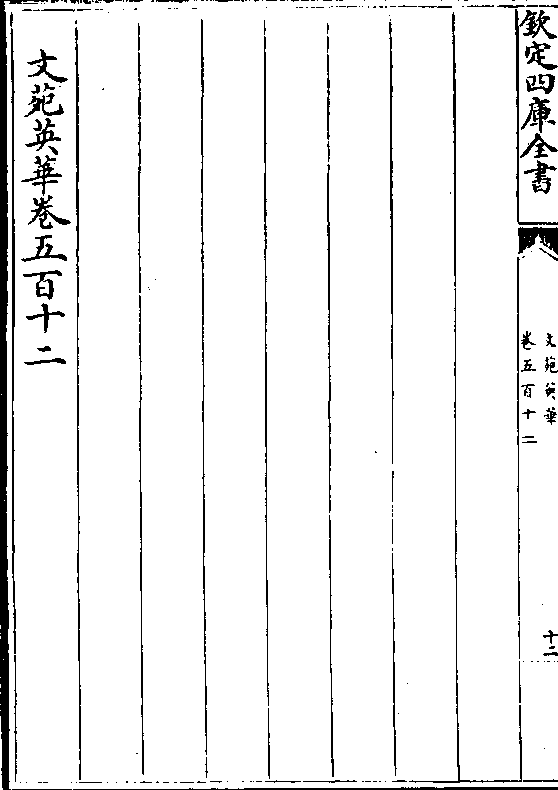 欽定四庫全書
文苑英華
卷五百十二
十二
文苑英華卷五百十二